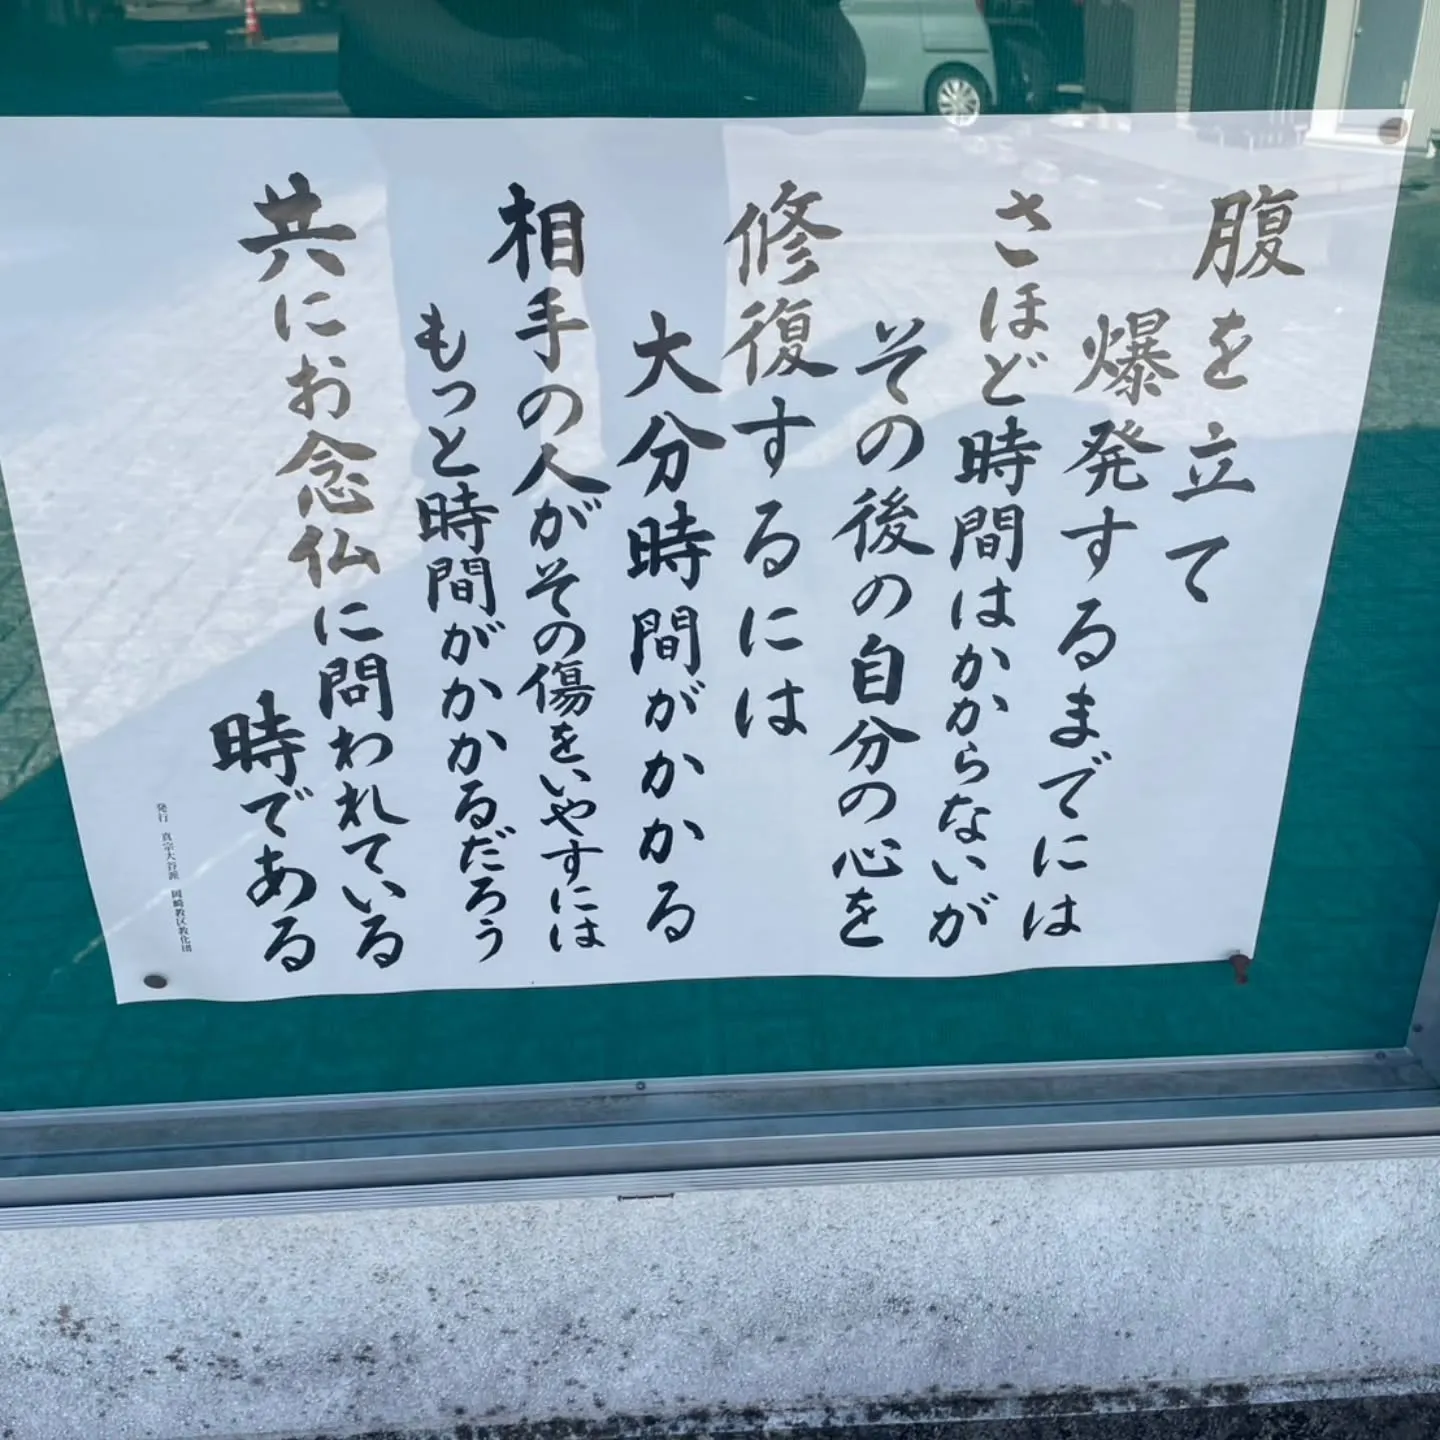 腹を立て
爆発するまでには
さほど時間はかからないが
その後の自分の心を
修復するには
大分時間がかかる
相手の人がその傷をいやすには
もっと時間がかかるだろう
共にお念仏に問われている
時である
発行 真宗大谷派 岡崎教区教化団